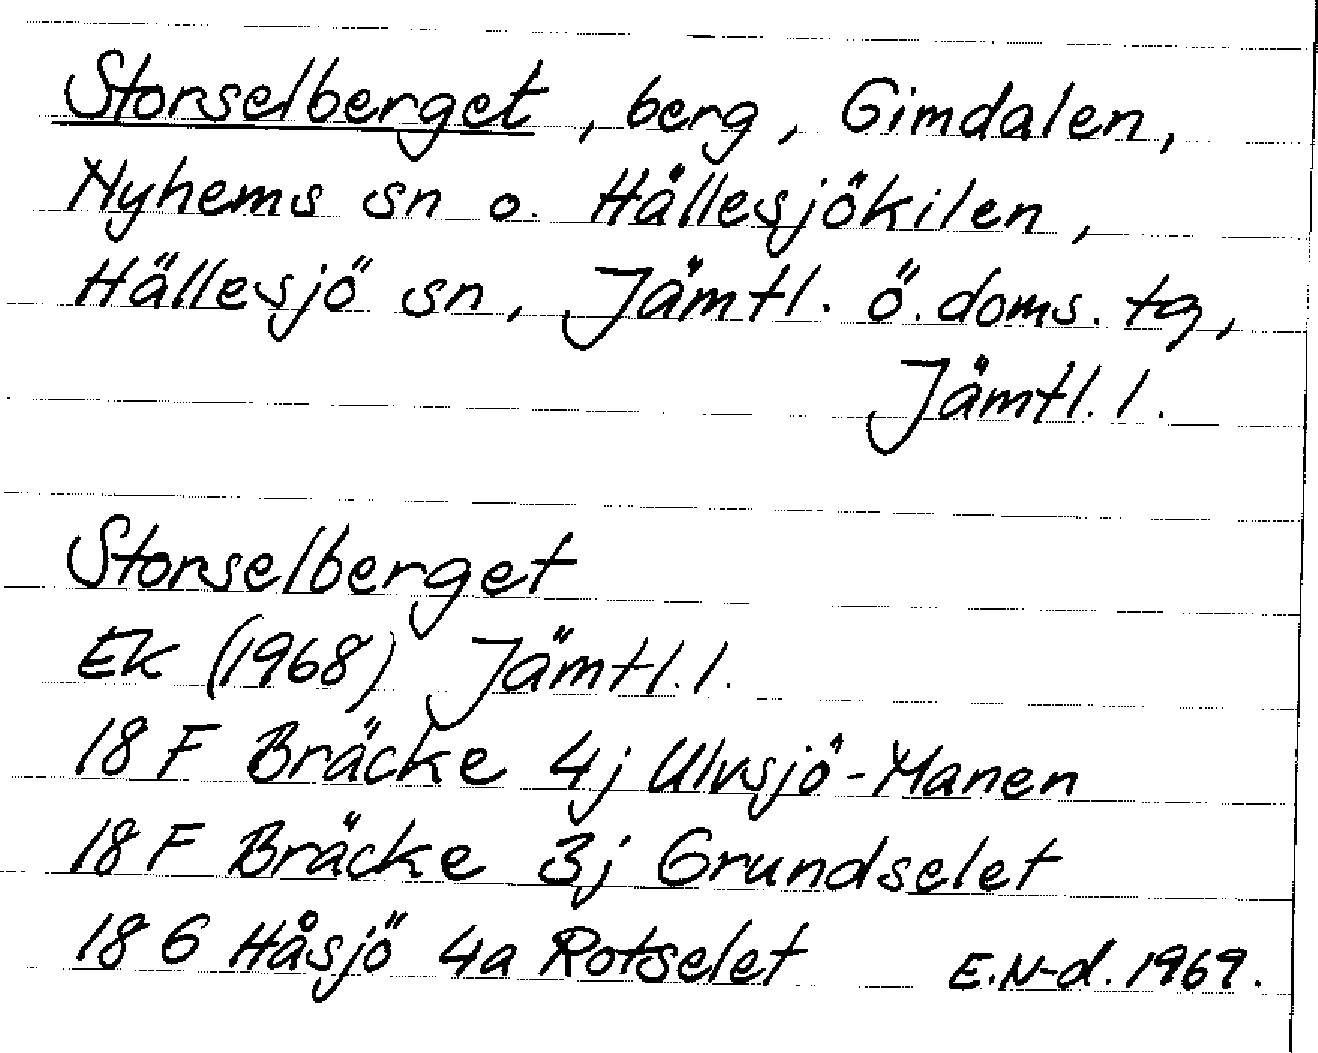 Storselberget, berg, Gimdalen,
Nyhems sn o. Hällesjökilen,
Hällesjö sn, Jämtl. ö. doms. tg,
Jämtl. l.
Storselberget
EK (1968) Jämtl. l.
18 F Bräcke 4j Ulvsjö-Manen
18 F Bräcke 3j Grundselet
18 G Håsjö 4a Rotselet E.N-d. 1969.